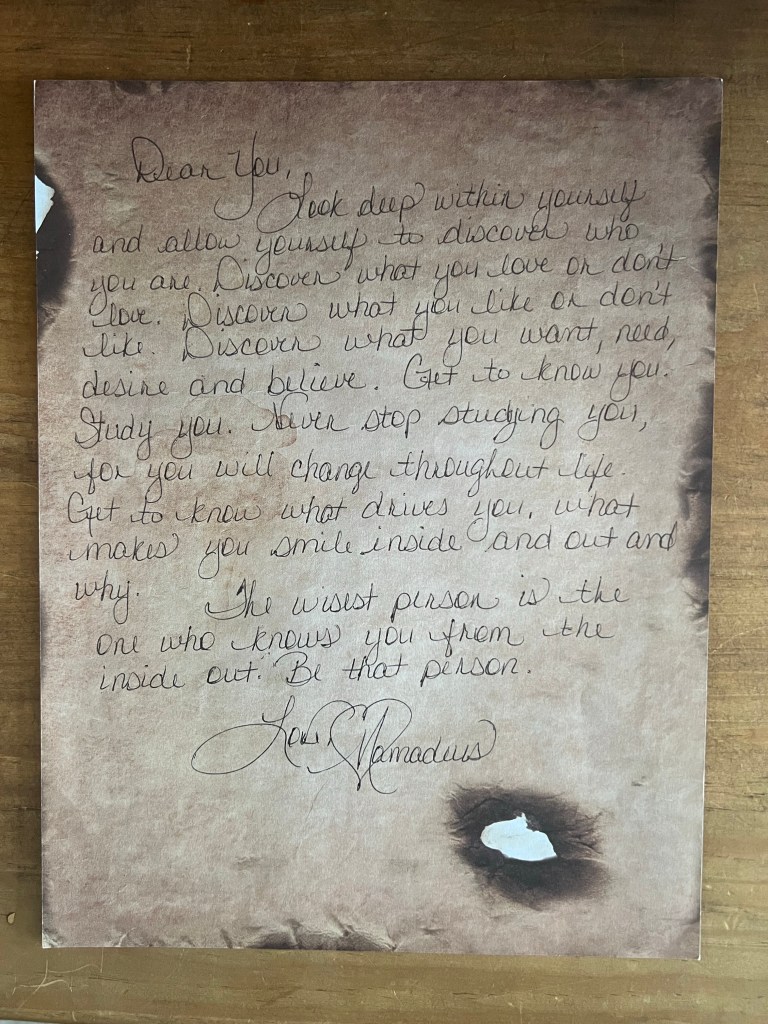 Dear You,
Look deep within yourself
and allow yourself to discover who
you are. Discover what you love or don't
love. Discover what you like or don't
like. Discover what you want, need,
desire and believe. Get to know you.
Study you. Never stop studying you,
for you will change throughout life.
Get to know what drives you, what
makes you smile inside and out and
why.
The wisest person is the
one who knows you from the
inside out. Be that person.
Love,